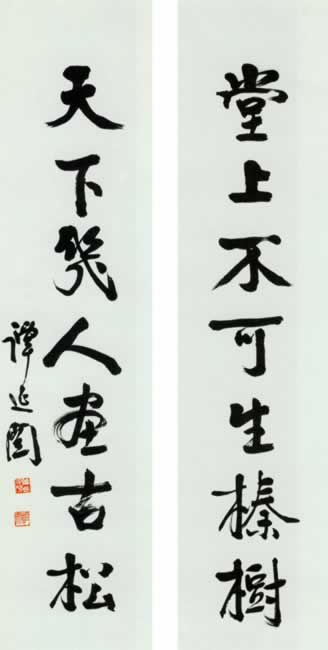 堂上不可生榛樹
天下幾人畫古松
譚延闓